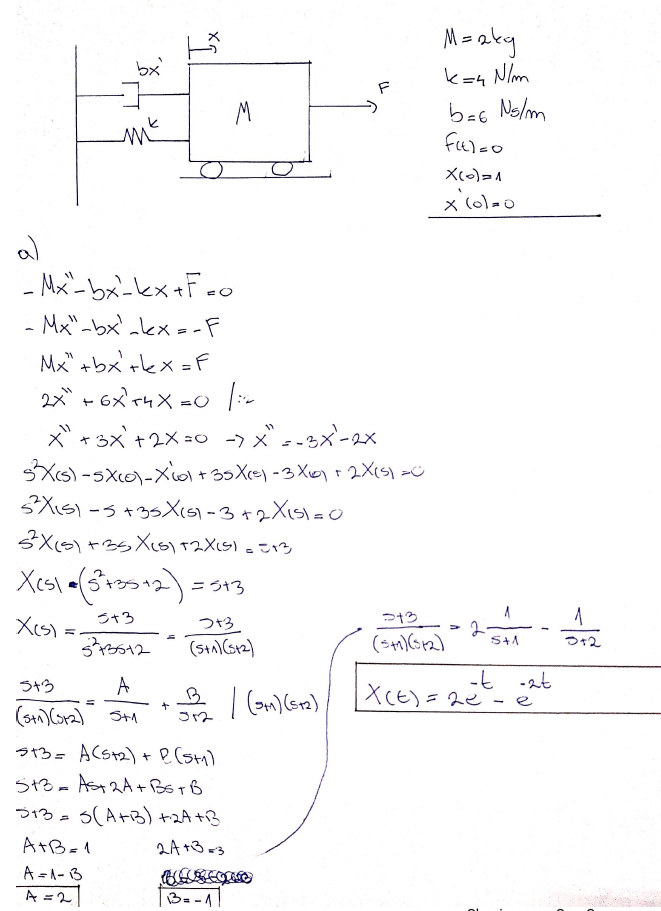 x
bx'
k
M
F
M=2kg
k=4 N/m
b=6 Ns/m
f(t)=0
x(0)=1
x'(0)=0
a)
-Mx''-bx'-kx+F=0
-Mx''-bx'-kx=-F
Mx''+bx'+kx=F
2x''+6x'+4x=0 /:2
x''+3x'+2x=0 -> x''=-3x'-2x
s²X(s)-sX(0)-X'(0)+3sX(s)-3X(0)+2X(s)=0
s²X(s)-s+3sX(s)-3+2X(s)=0
s²X(s)+3sX(s)+2X(s)=s+3
X(s)•(s²+3s+2)=s+3
X(s)=s+3/s²+3s+2=s+3/(s+1)(s+2)
s+3/(s+1)(s+2)=A/s+1+B/s+2 |(s+1)(s+2)
s+3=A(s+2)+B(s+1)
s+3=As+2A+Bs+B
s+3=s(A+B)+2A+B
A+B=1 2A+B=3
A=1-B
A=2 B=-1
s+3/(s+1)(s+2)=2 1/s+1 - 1/s+2
X(t)=2e^-t-e^-2t